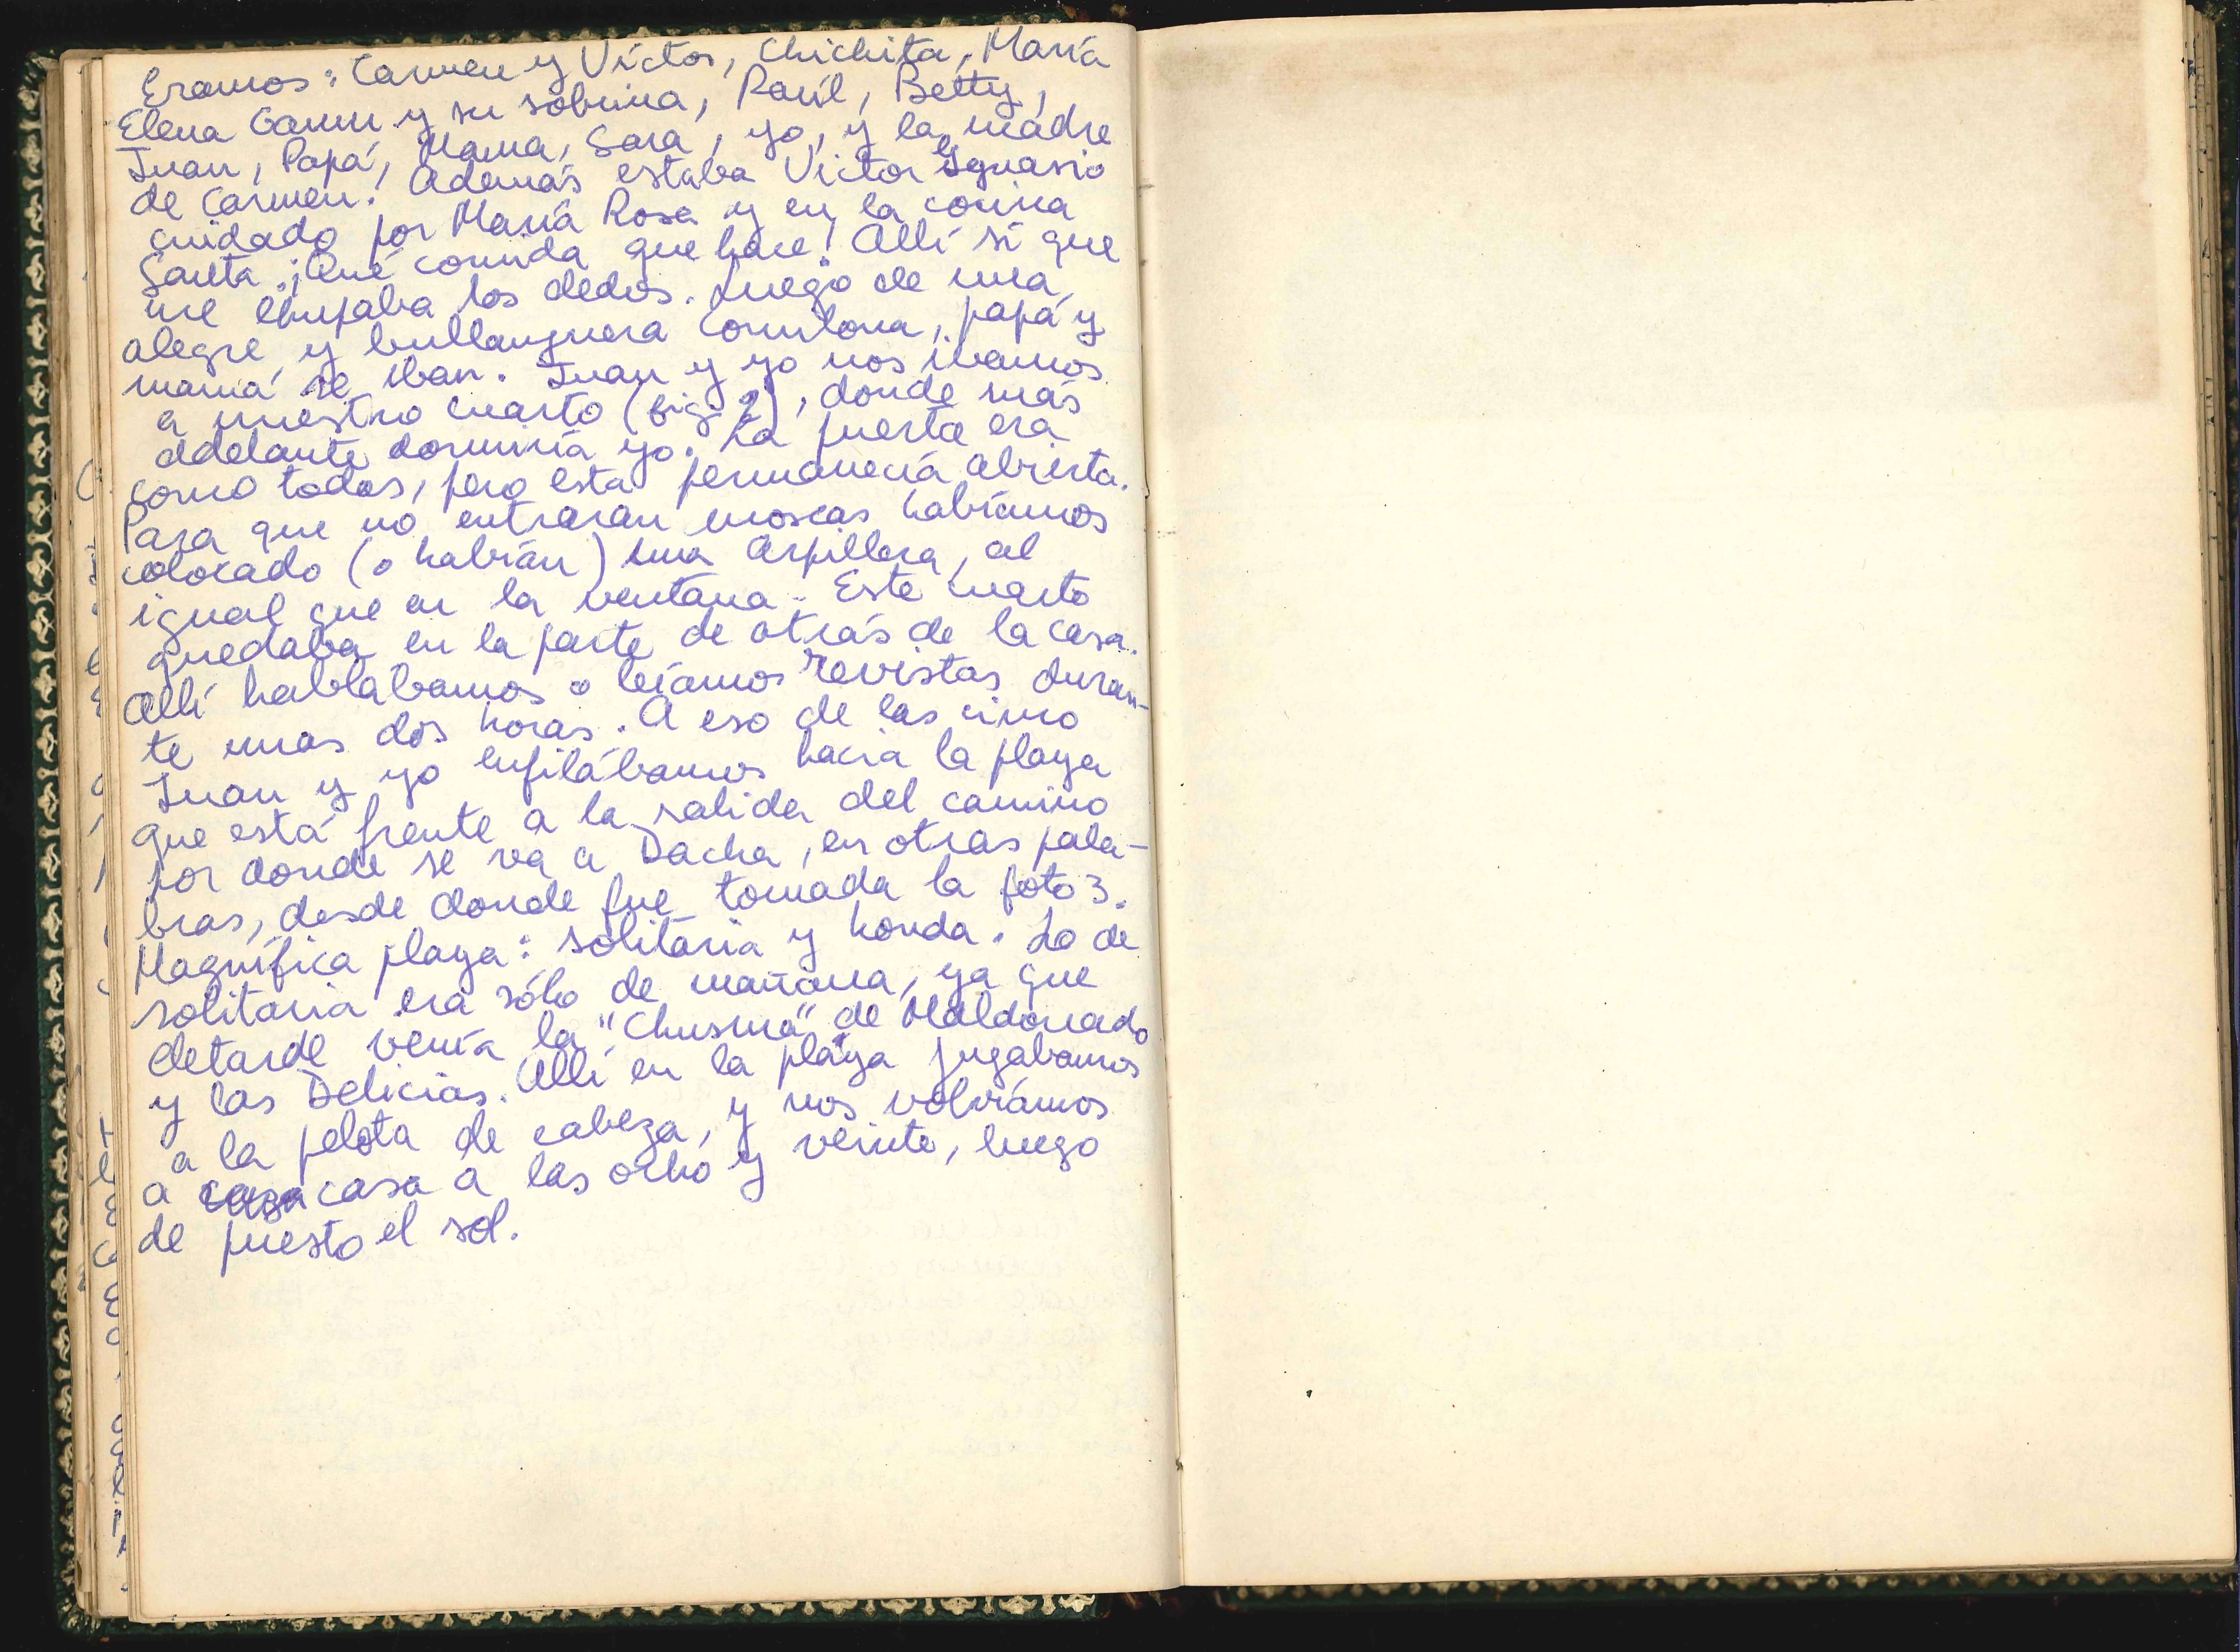 Eramos: Carmen y Víctor, Chichita, María
Elena Garmn y su sobrina, Raúl, Betty,
Juan, Papá, Mama, Sara, yo, y la madre
de Carmen. Además estaba Victor Ignasio
cuidado por María Rosa y en la cocina
Santa. ¡Qué comida que hace! Allí sí que
me chupaba los dedos. Luego de una
alegre y bullanguera comilona, papá y
mamá se iban. Juan y yo nos ivamos
a nuestro cuarto (fig. 2), donde más
adelante dormiría yo. La puerta era
como todas, pero esta permanecía abierta.
Para que no entraran moscas habíamos
colocado (o habían) una arpillera, al
igual que en la ventana. Este cuarto
quedaba en la parte de atrás de la casa.
Allí hablábamos o leíamos revistas duran-
te unas dos horas. A eso de las cinco
Juan y yo enfilábamos hacia la playa
que está frente a la salida del camino
por donde se va a Dacha, en otras pala-
bras, desde donde fue tomada la foto 3.
Magnífica playa: solitaria y honda. Lo de
solitaria era sólo de mañana, ya que
detarde venía la "Chusma" de Maldonado
y las Delicias. Allí en la playa jugabamos
a la pelota de cabeza, y nos volvíamos
a casa a las ocho y veinte, luego
de puesto el sol.